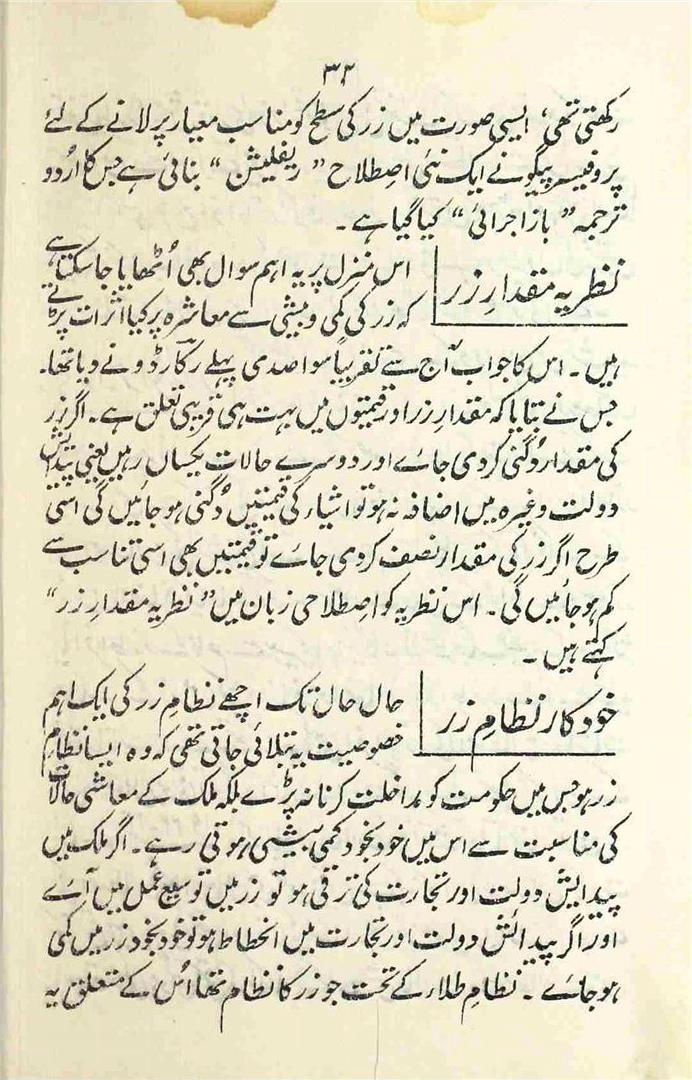 ۳۲
رکھتی تھی، ایسی صورت میں زر کی سطح کو مناسب معیار پر لانے کے لئے
پروفیسر پیگو نے ایک نئی اصطلاح ”ریفلیشن“ بنائی ہے جس کا اُردو
ترجمہ ”باز اجرائی“ کیا گیا ہے۔
نظریہ مقدارِ زر
اس منزل پر یہ اہم سوال بھی اُٹھایا جا سکتا ہے
کہ زر کی کمی و بیشی سے معاشرہ پر کیا اثرات پڑتے
ہیں۔ اس کا جواب آج سے تقریباً سوا صدی پہلے رکارڈو نے دیا تھا۔
جس نے بتایا کہ مقدارِ زر اور قیمتوں میں بہت ہی قریبی تعلق ہے۔ اگر زر
کی مقدار دُگنی کر دی جائے اور دوسرے حالات یکساں رہیں یعنی پیدائش
دولت وغیرہ میں اضافہ نہ ہو تو اشیاء کی قیمتیں دُگنی ہو جائیں گی اسی
طرح اگر زر کی مقدار نصف کر دی جائے تو قیمتیں بھی اسی تناسب سے
کم ہو جائیں گی۔ اس نظریہ کو اصطلاحی زبان میں ”نظریہ مقدارِ زر“
کہتے ہیں۔
خود کار نظامِ زر
حال حال تک اچھے نظامِ زر کی ایک اہم
خصوصیت یہ بتلائی جاتی تھی کہ وہ ایسا نظامِ
زر ہو جس میں حکومت کو مداخلت کرنا نہ پڑے بلکہ ملک کے معاشی حالات
کی مناسبت سے اس میں خود بخود کمی بیشی ہوتی رہے۔ اگر ملک میں
پیدایش دولت اور تجارت کی ترقی ہو تو زر میں توسیع عمل میں آئے
اور اگر پیدائش دولت اور تجارت میں انحطاط ہو تو خود بخود زر میں کمی
ہو جائے۔ نظامِ طلاء کے تحت جو زر کا نظام تھا اُس کے متعلق یہ